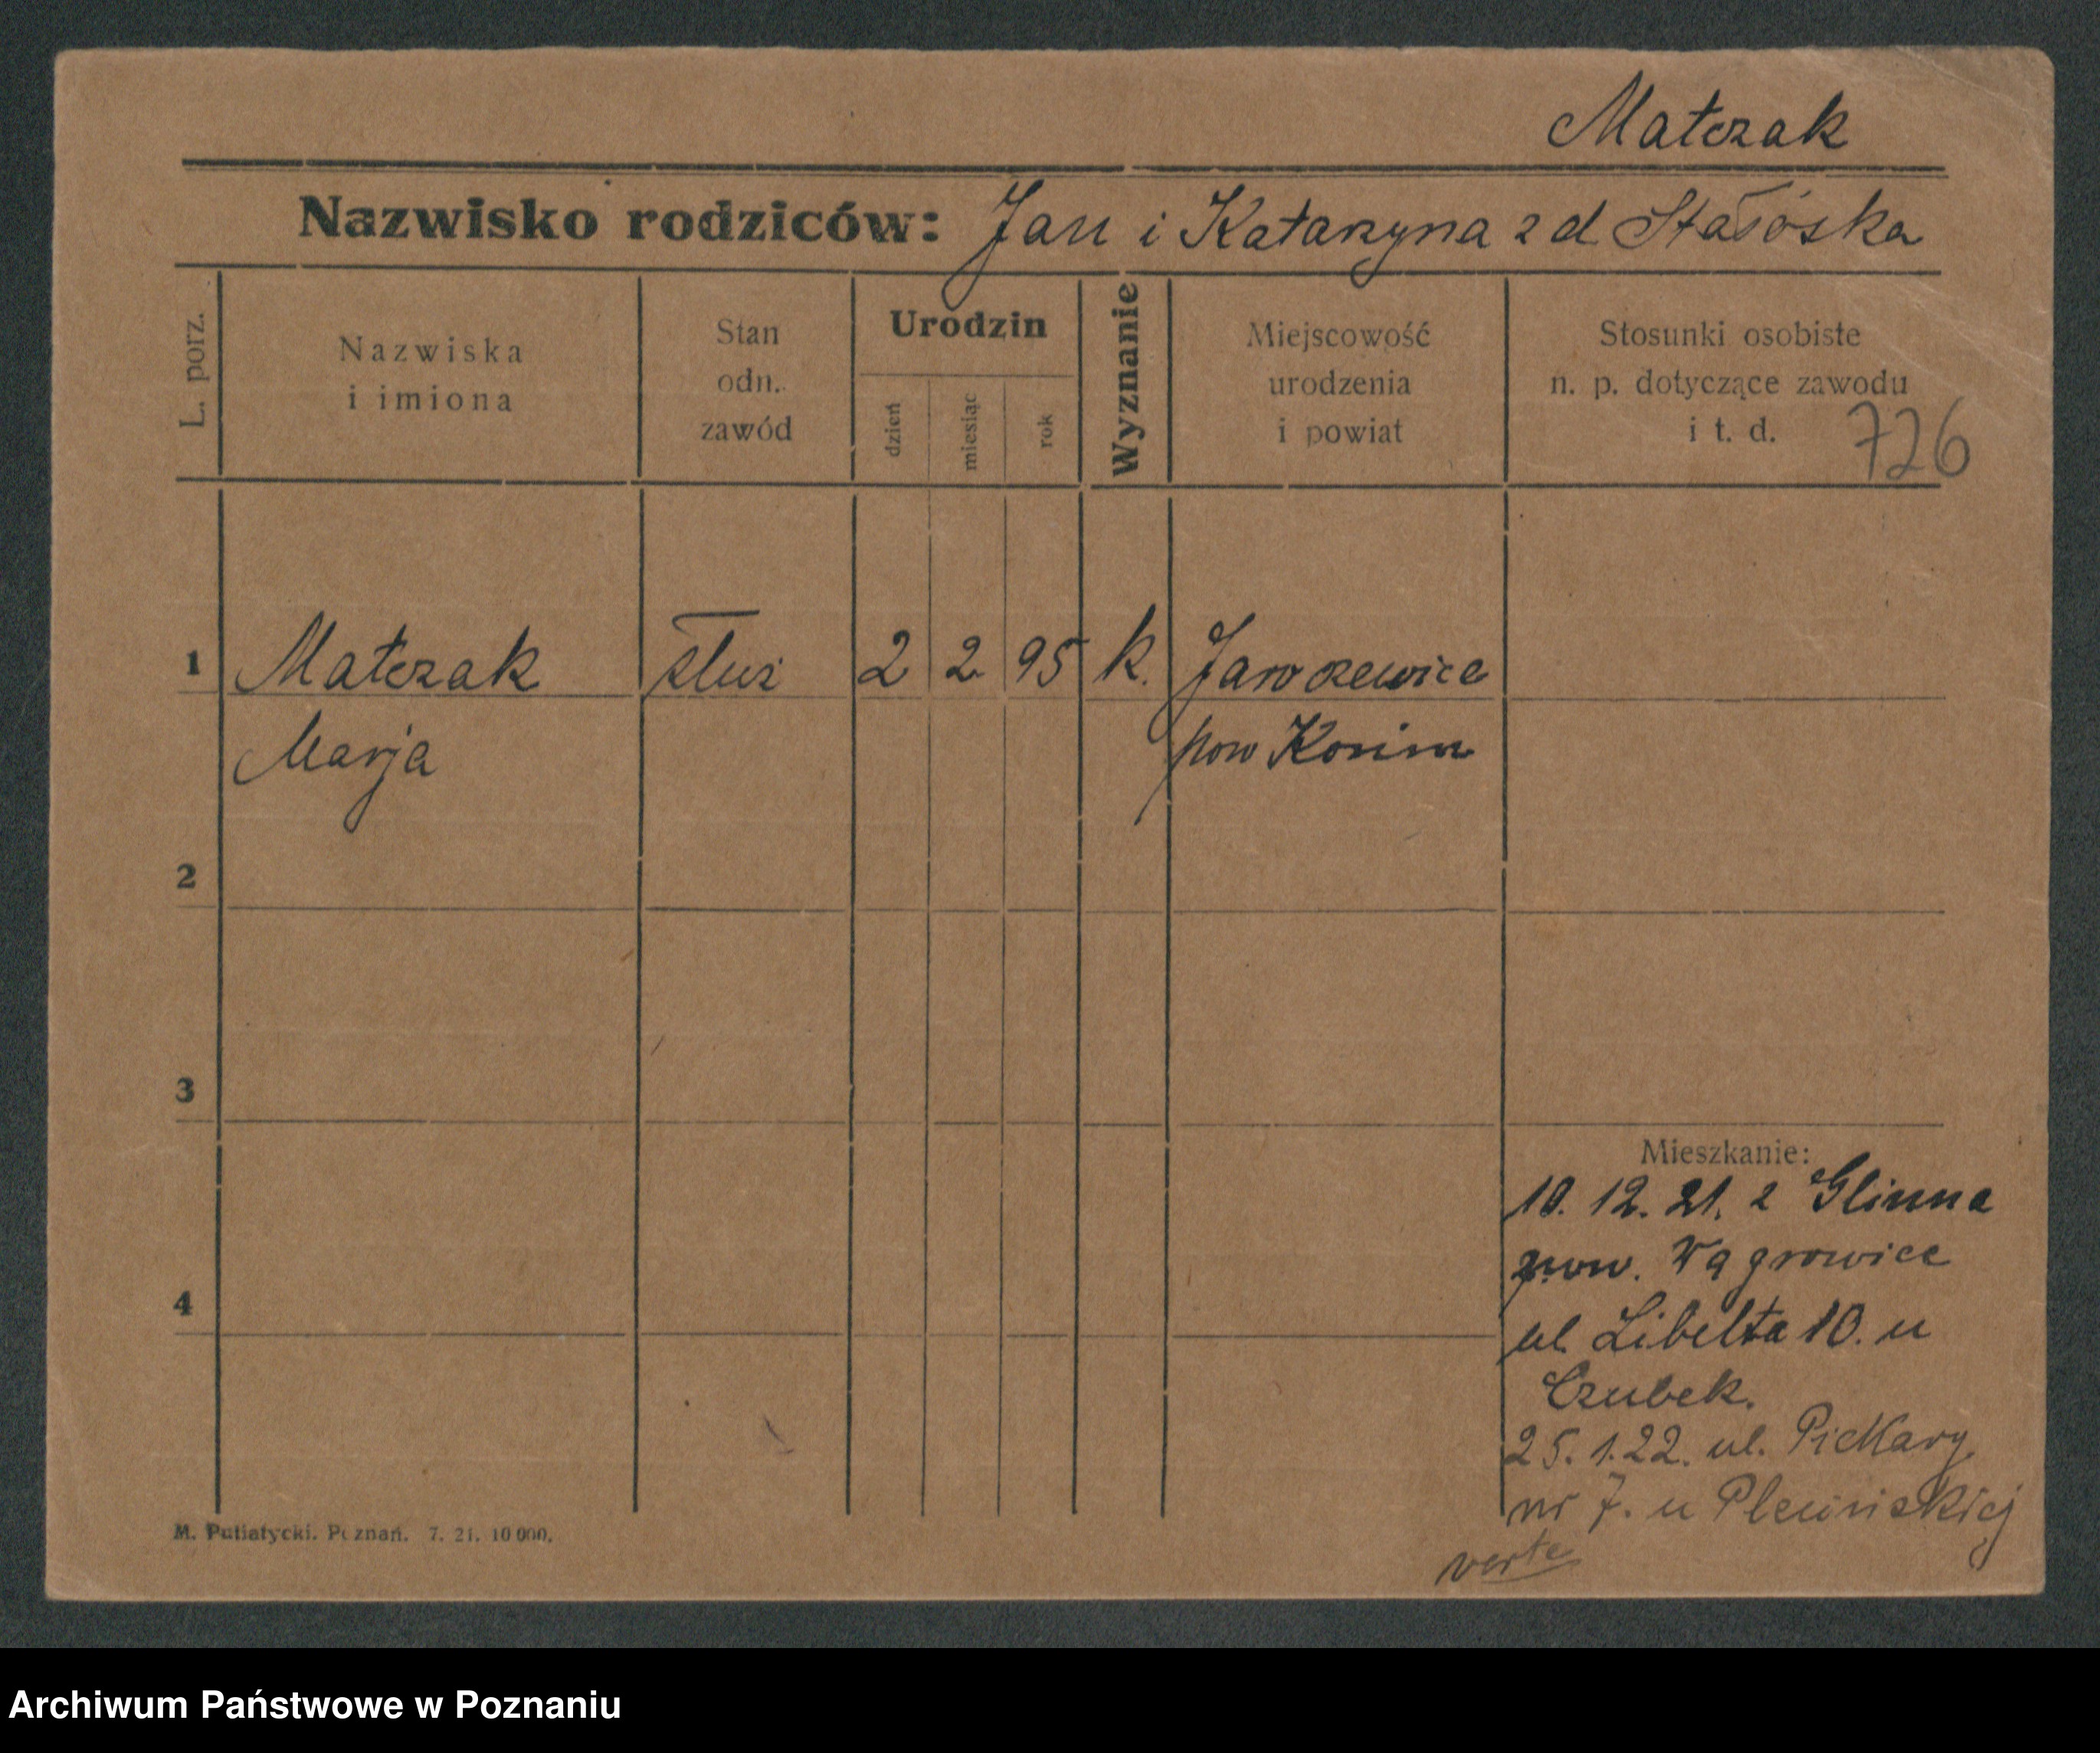 Matczak
Nazwisko rodziców: Jan i Katarzyna z d
L. porz.
Nazwiska
i imiona
Stan
odn.
zawód
Urodzin
dzień
miesiąc
rok
Wyznanie
Miejscowość
urodzenia
i powiat
Stosunki osobiste
n. p. dotyczące zawodu
i t. d.
726
1 Matczak 2 2 95 k.
Marja pow
2
3
4
Mieszkanie:
10. 12. 21. z Glinna
pow. Wągrowice
ul. Libelta 10. u
Czubek.
25. 1. 22. ul. Piekary
nr 7. u
verte
M. Putiatycki. Poznań. 7. 21. 10 000.
Archiwum Państwowe w Poznaniu